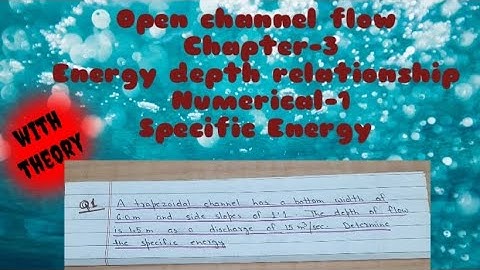 Open channel flow
Chapter-3
Energy depth relationship
Numerical-1
Specific Energy
WITH
THEORY
Q1 A trapezoidal channel has a bottom width of
6.0m and side slopes of 1:1. The depth of flow
is 1.5 m as a discharge of 15 m³/sec. Determine
the specific energy